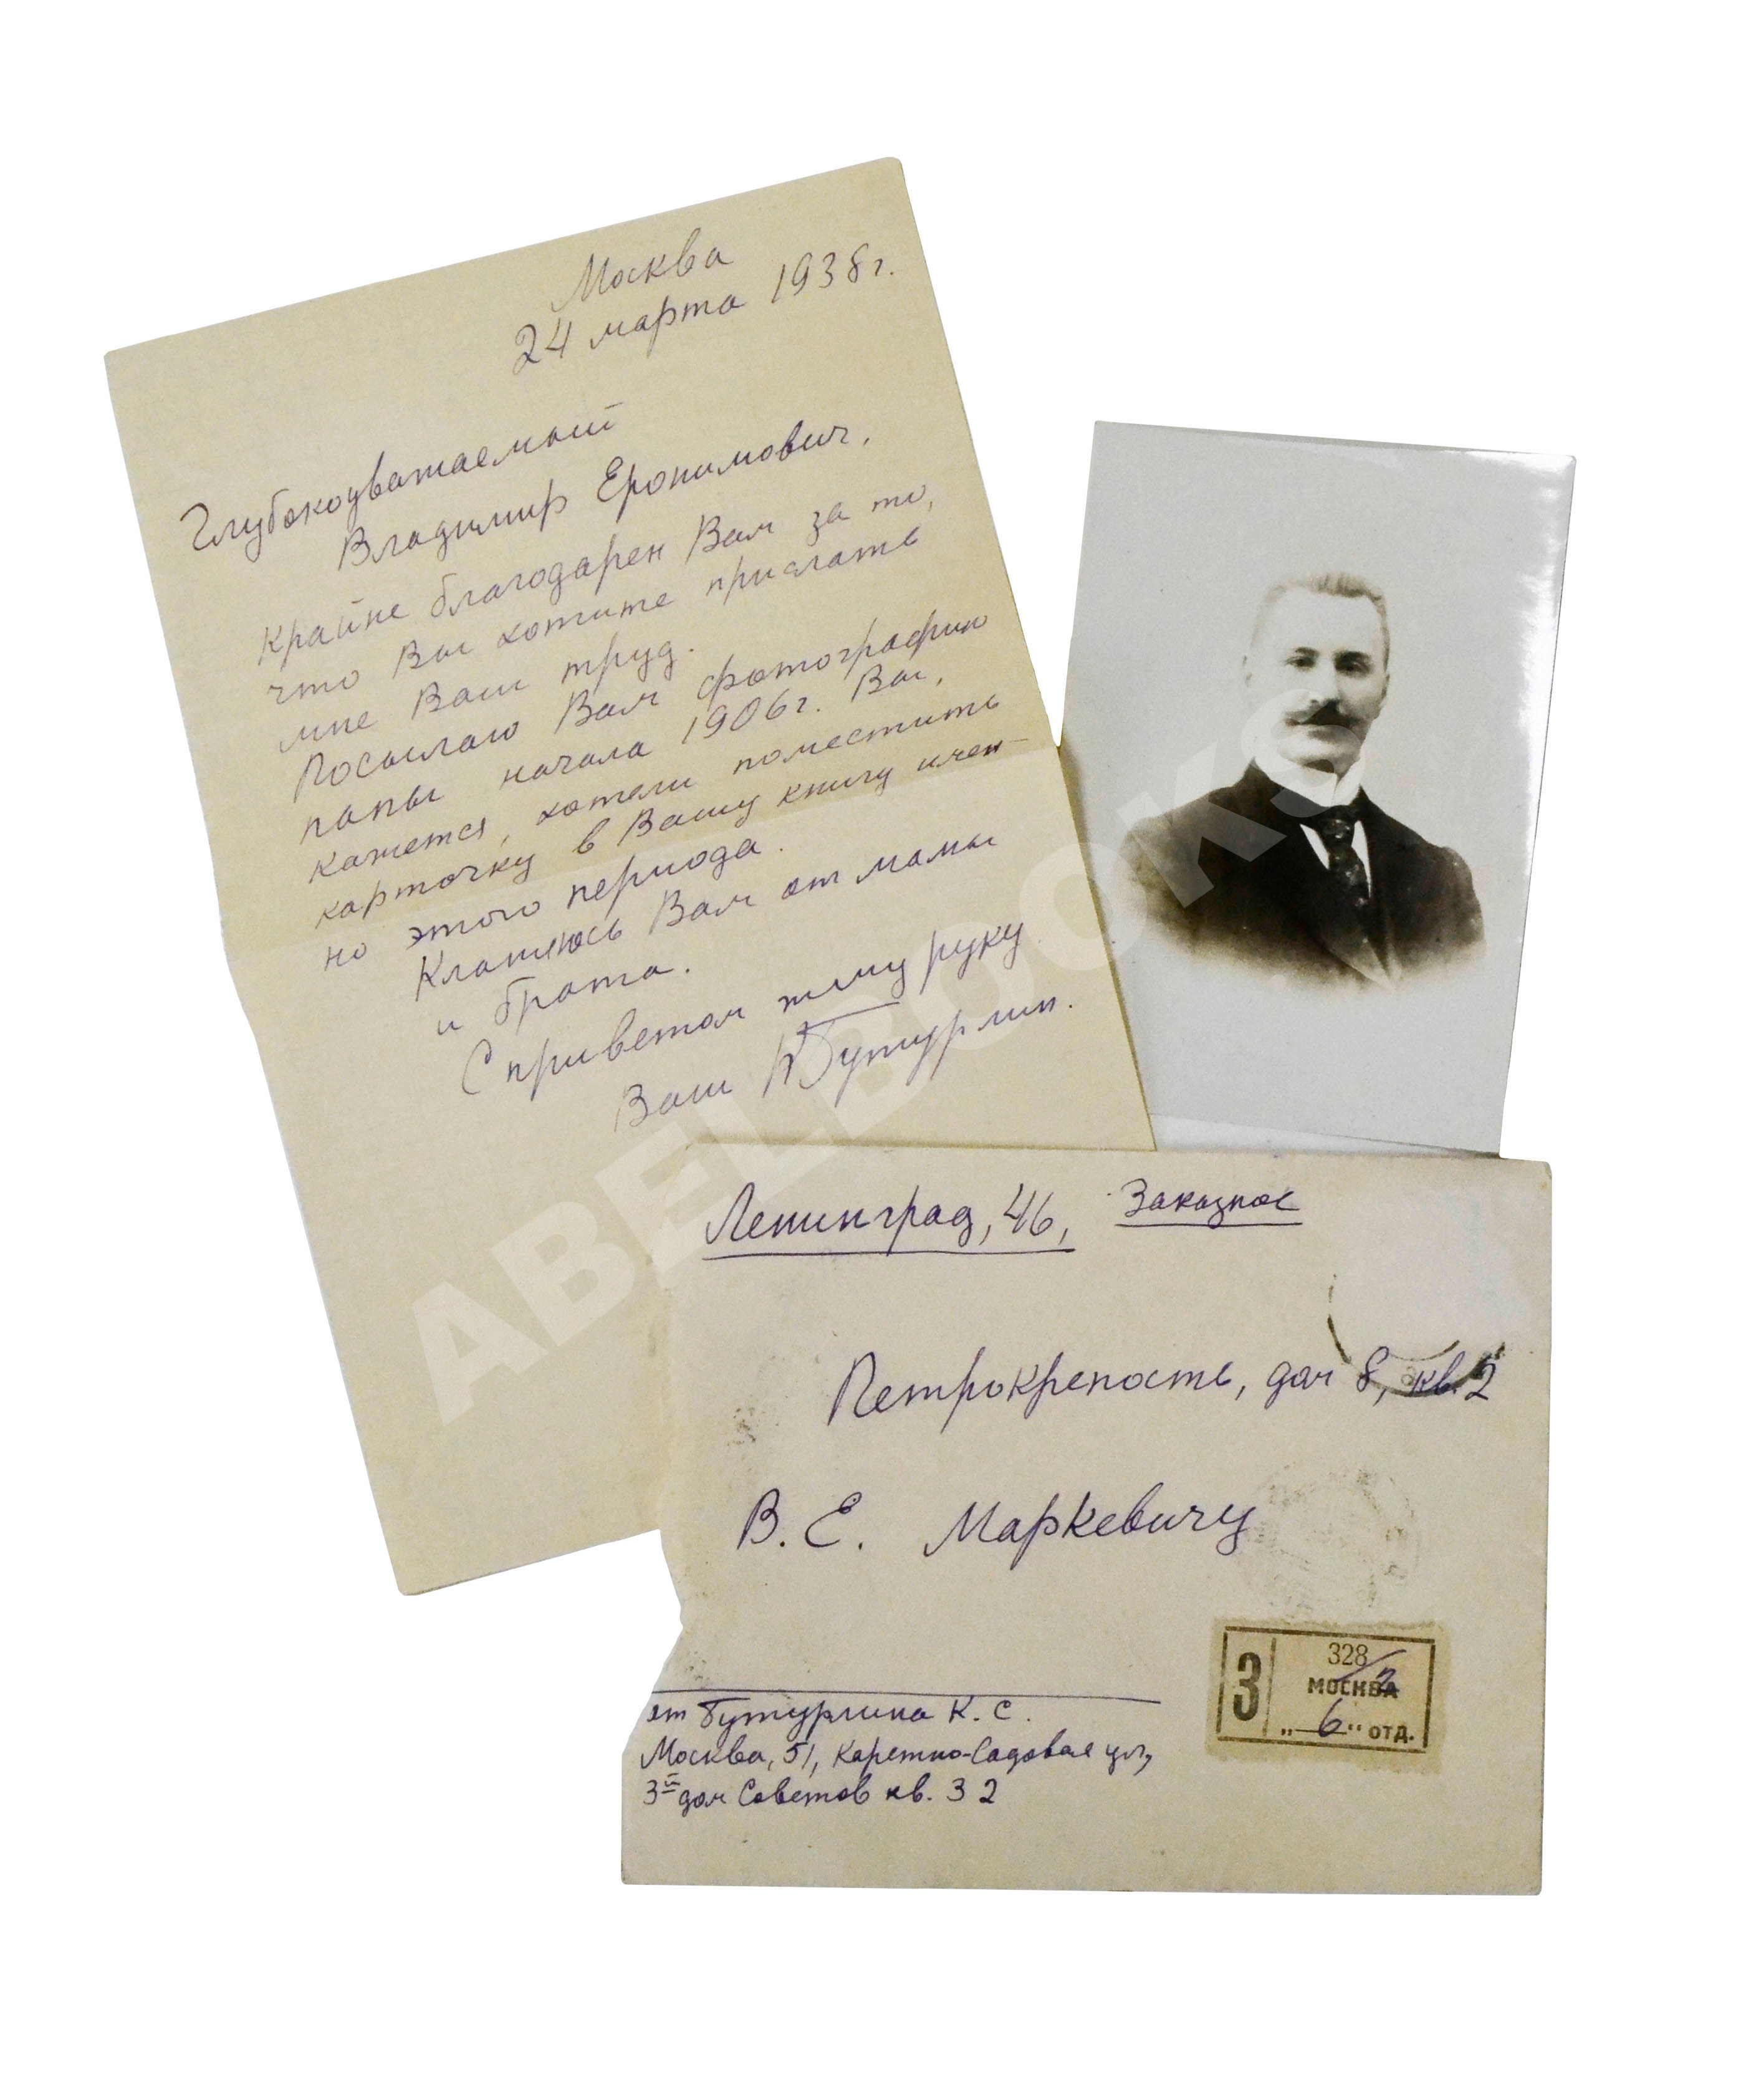 Москва
24 марта 1938 г.
Глубокоуважаемый
Владимир Еронимович,
Крайне благодарен Вам за то,
что Вы хотите прислать
мне Ваш труд.
Посылаю Вам фотографию
папы начала 1906 г. Вы,
кажется, хотели поместить
карточку в Вашу книгу имен-
но этого периода.
Кланяюсь Вам от мамы
и брата.
С приветом жму руку
Ваш КБутурлин.
Ленинград, 46, Заказное
Петрокрепость, дом 8, кв. 2
В. Е. Маркевичу
от Бутурлина К. С.
Москва, 51, Каретно-Садовая ул,
3й дом Советов кв. 32
З
328
МОСКВА 2
„ 6 “ ОТД.
ABELBOOKS